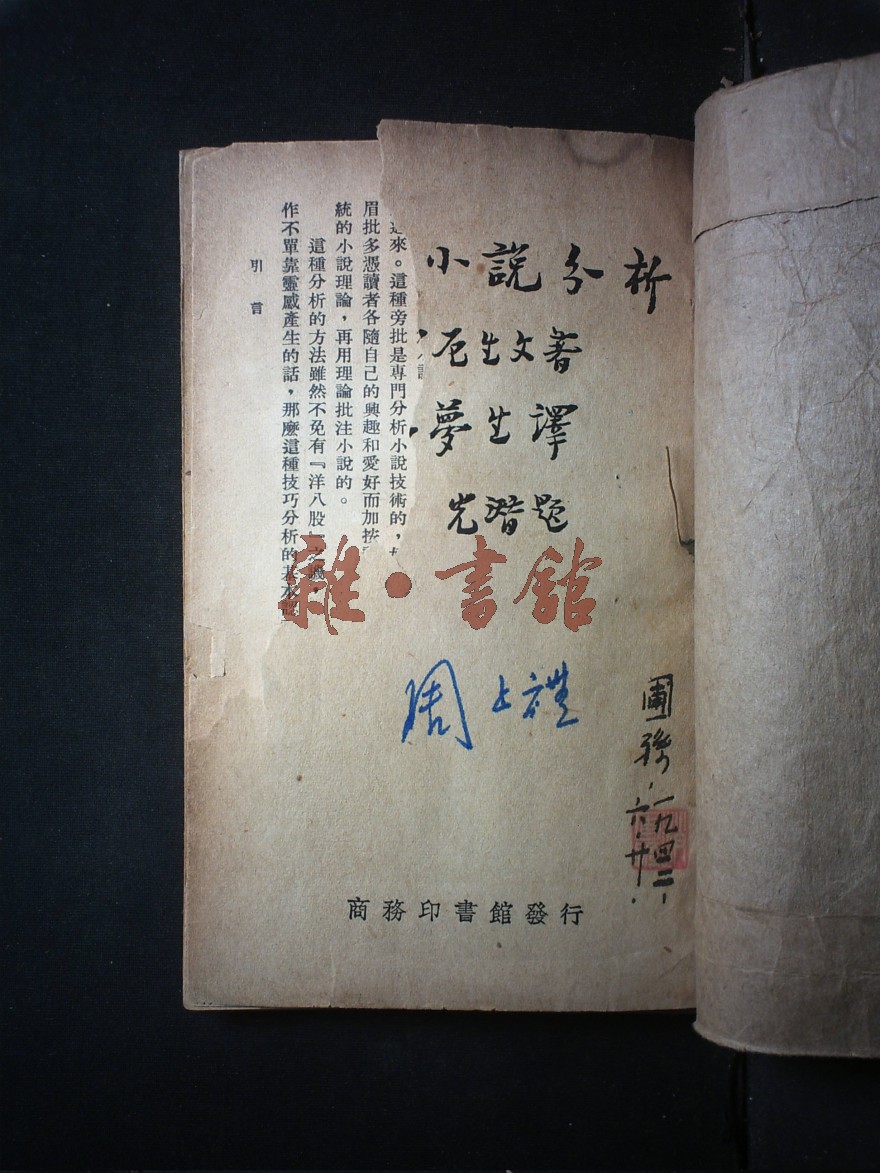 小說分析
生文著
夢生譯
光潛題
周上禮
一九四二、
六、廿、
商務印書館發行
來。這種旁批是專門分析小說技術的，
眉批多憑讀者各隨自己的興趣和愛好而加按
統的小說理論，再用理論批注小說的。
這種分析的方法雖然不免有『洋八股』之譏，
作不單靠靈感產生的話，那麼這種技巧分析的基本
引言
雜·書館